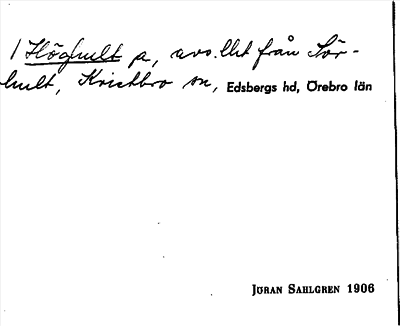 1 Höghult p, avs. llst från Sör-
hult, Kvistbro sn, Edsbergs hd, Örebro län
Jöran Sahlgren 1906